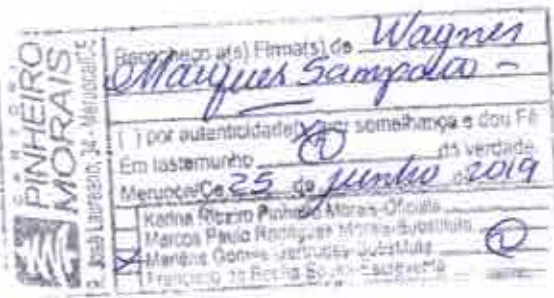 CARTÓRIO
PINHEIRO
MORAIS
José Laureano, 34 - Meruoca/CE
Reconheço a(s) Firma(s) de Wagner
Marques Sampaio -
( ) por autenticidade (X) por semelhança e dou Fé
Em testemunho da verdade.
Meruoca/Ce 25 de junho de 2019
Karina Ribeiro Pinheiro Morais-Oficiala
Marcos Paulo Rodrigues Morais-Substituto
X Marlene Gomes Substituta
Francisco da Rocha Escrevente